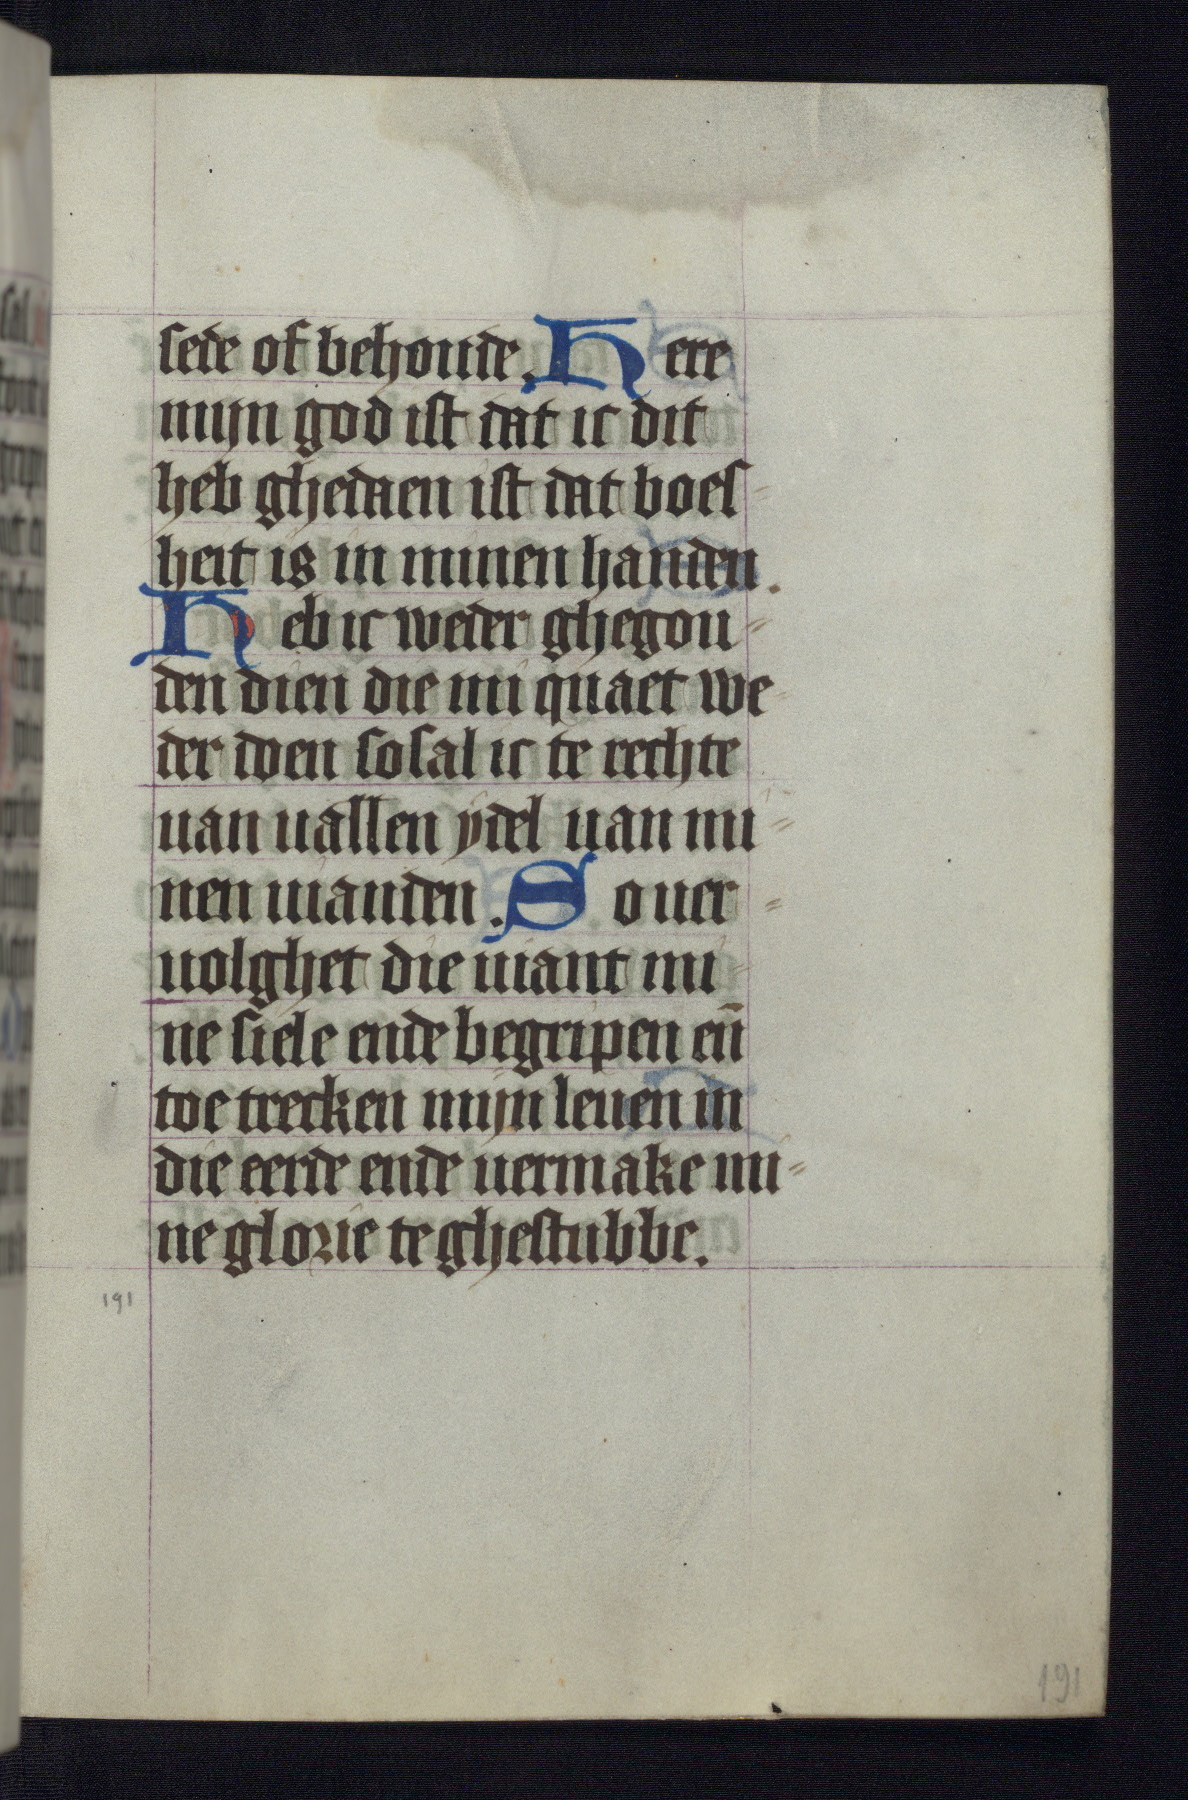 sede of behoude. Here
mijn god ist dat ic dit
heb ghedaen ist dat boes
heit is in minen handen.
Heb ic weder ghegou
den dien die mi quaet we
der doen so sal ic te rechte
uan uallen ydel uan mi
nen uianden. So uer
uolghet die uiant mi
ne siele ende begripen eñ
toe trecken mijn leuen in
die eerde ende uermake mi
ne glorie te ghestubbe.
191
191